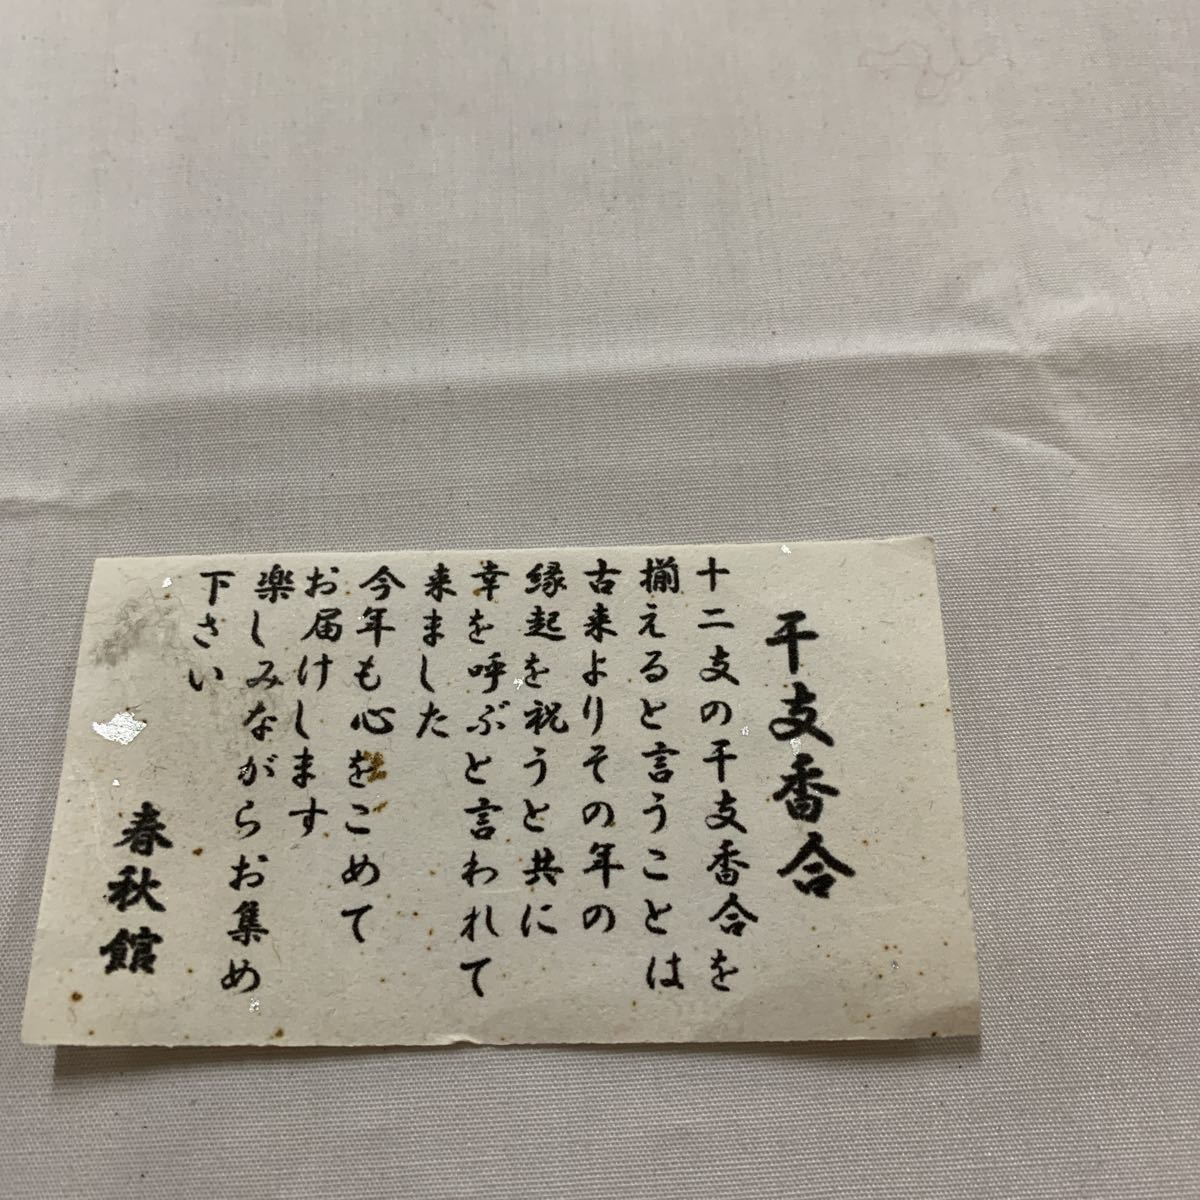 干支香合
十二支の干支香合を
揃えると言うことは
古来よりその年の
縁起を祝うと共に
幸を呼ぶと言われて
来ました
今年も心をこめて
お届けします
楽しみながらお集め
下さい
春秋館